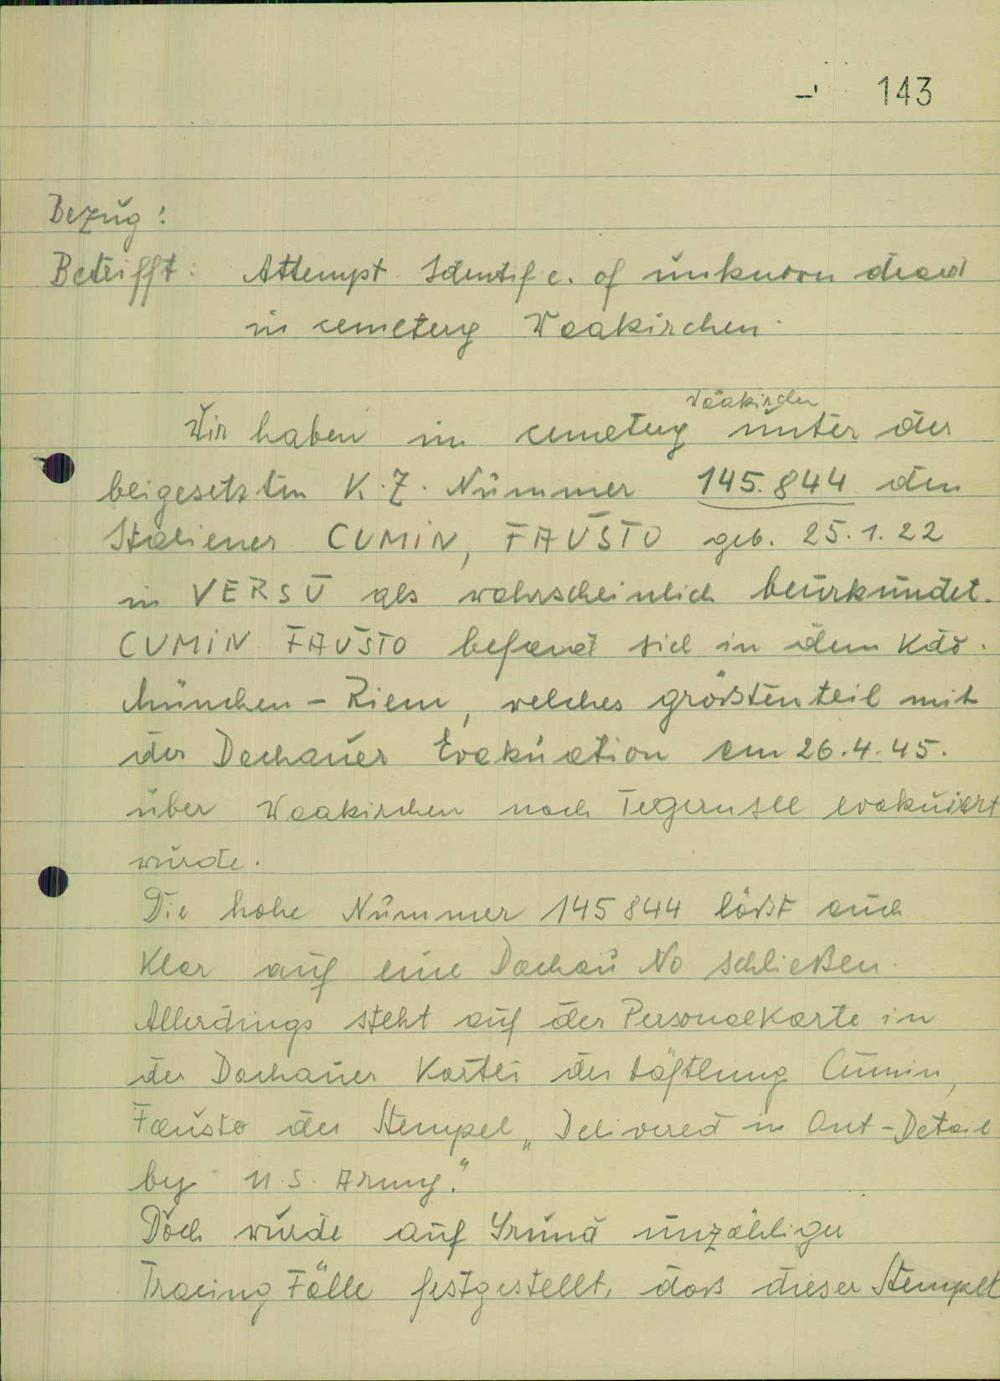 143
Bezug:
Betrifft: Attempt Identific. of unknown dead
in cemetery Waakirchen
Waakirchen
Wir haben im cemetery unter der
beigesetzten K.Z. Nummer 145.844 den
Italiener CUMIN, FAUSTO geb. 25.1.22
in VERSU als wahrscheinlich beurkundet.
CUMIN FAUSTO befand sich in dem Kdo.
München - Riem, welches größtenteil mit
der Dachauer Evakuation am 26.4.45.
über Waakirchen nach Tegernsee evakuiert
wurde.
Die hohe Nummer 145844 läßt auch
klar auf eine Dachau No schließen.
Allerdings steht auf der Personalkarte in
der Dachauer Kartei des Häftling Cumin,
Fausto der Stempel „Delivered in Out-Detail
by U.S. Army."
Doch wurde auf Grund unzähliger
Tracing Fälle festgestellt, daß dieser Stempel